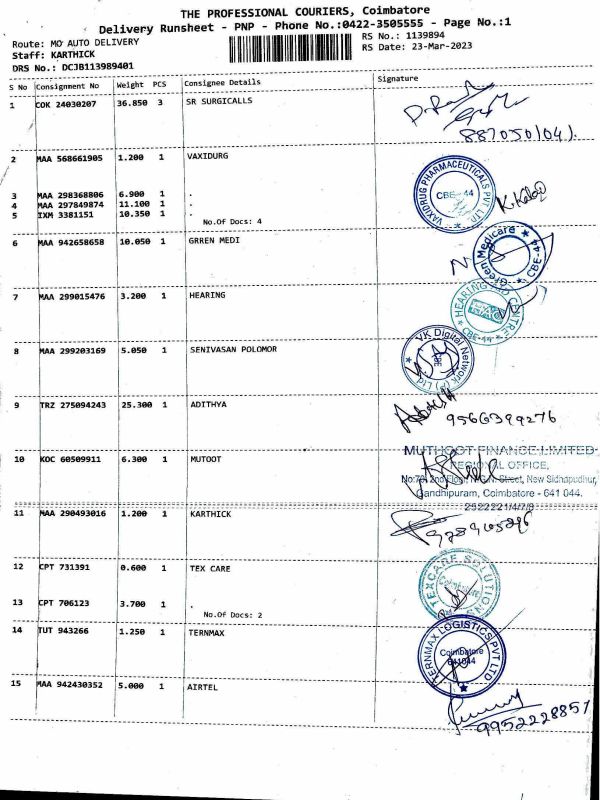 THE PROFESSIONAL COURIERS, Coimbatore
Delivery Runsheet - PNP - Phone No.:0422-3505555 - Page No.:1
Route: MO AUTO DELIVERY
RS No.: 1139894
Staff: KARTHICK
RS Date: 23-Mar-2023
DRS No.: DCJB113989401
S No Consignment No Weight PCS Consignee Details Signature
1 COK 24030207 36.850 3 SR SURGICALLS
2 MAA 568661905 1.200 1 VAXIDURG
VAXIDRUG PHARMACEUTICALS PVT LTD
CBE-44
3 MAA 298368806 6.900 1 .
4 MAA 297849874 11.100 1 .
5 IXM 3381151 10.350 1 .
No.Of Docs: 4
6 MAA 942658658 10.050 1 GRREN MEDI
Green Medicare
CBE-44
7 MAA 299015476 3.200 1 HEARING
CBE-44
8 MAA 299203169 5.050 1 SENIVASAN POLOMOR
VK Digital Network (P) Ltd
CBE
9 TRZ 275094243 25.300 1 ADITHYA
9566399276
10 KOC 60509911 6.300 1 MUTOOT
MUTHOOT FINANCE LIMITED
REGIONAL OFFICE,
Street, New Sidhapudhur,
Gandhipuram, Coimbatore - 641 044.
11 MAA 290493016 1.200 1 KARTHICK
12 CPT 731391 0.600 1 TEX CARE
TEXCARE SOLUTIONS
13 CPT 706123 3.700 1 .
No.Of Docs: 2
14 TUT 943266 1.250 1 TERNMAX
TERNMAX LOGISTICS PVT LTD
Coimbatore
641044
15 MAA 942430352 5.000 1 AIRTEL
9952228857